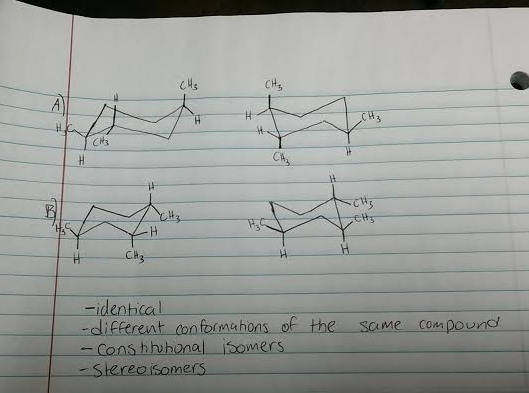 A)
CH3 CH3
H
H3C CH3 H
H
H H CH3
CH3 H
B)
H H
H3C CH3 CH3
H H3C CH3
H CH3 H H
-identical
-different conformations of the same compound
-constitutional isomers
-stereoisomers